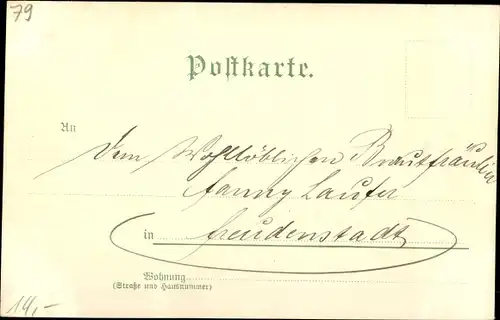 79
Postkarte.
An
Dem Wohllöblichen Brautfräulein
Fanny Laufer
in Freudenstadt
Wohnung
(Straße und Hausnummer)
14,-